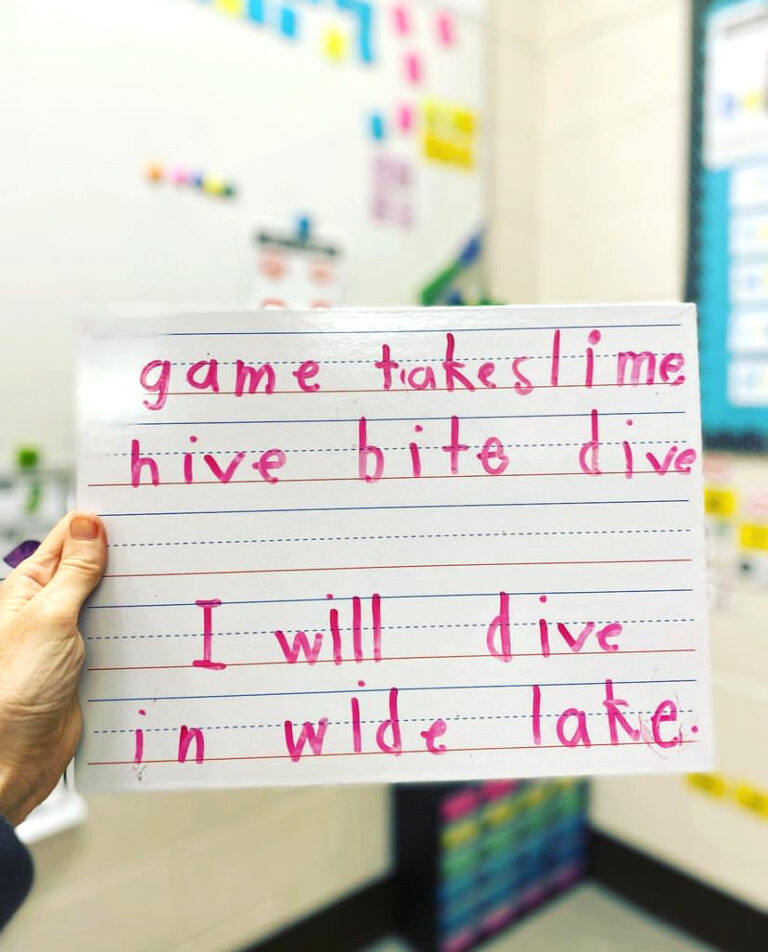 game take slime
hive bite dive
I will dive
in wide lake.